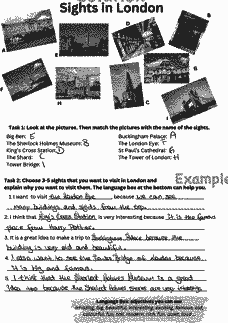 Sights in London
A
B
D
E
F
G
H
I
C
Task 1: Look at the pictures. Then match the pictures with the name of the sights.
Big Ben: E
Buckingham Palace: A
The Sherlock Holmes Museum: B
The London Eye:
King's Cross Station: D
St Paul's Cathedral: G
The Shard: C
The Tower of London: H
Tower Bridge:
Example
Task 2: Choose 3-5 sights that you want to visit in London and
explain why you want to visit them. The language box at the bottom can help you.
1. I want to visit the London Eye because we can see
many buildings and sights from the top.
2. I think that King's Cross Station is very interesting because It is the famous
place from Harry Potter.
3. It is a great idea to make a trip to Buckingham Palace because the
building is very old and beautiful.
4. I also want to see the Tower Bridge of London because
it is big and famous.
5. I think that the Sherlock Holmes Museum is a good
idea too because the Sherlock Holmes stories are very